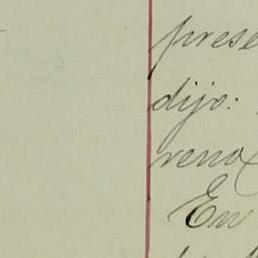 prese
dijo:
reno
En